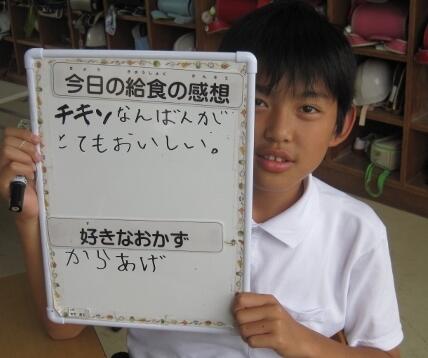 今日の給食の感想
チキンなんばんが
とてもおいしい。
好きなおかず
からあげ